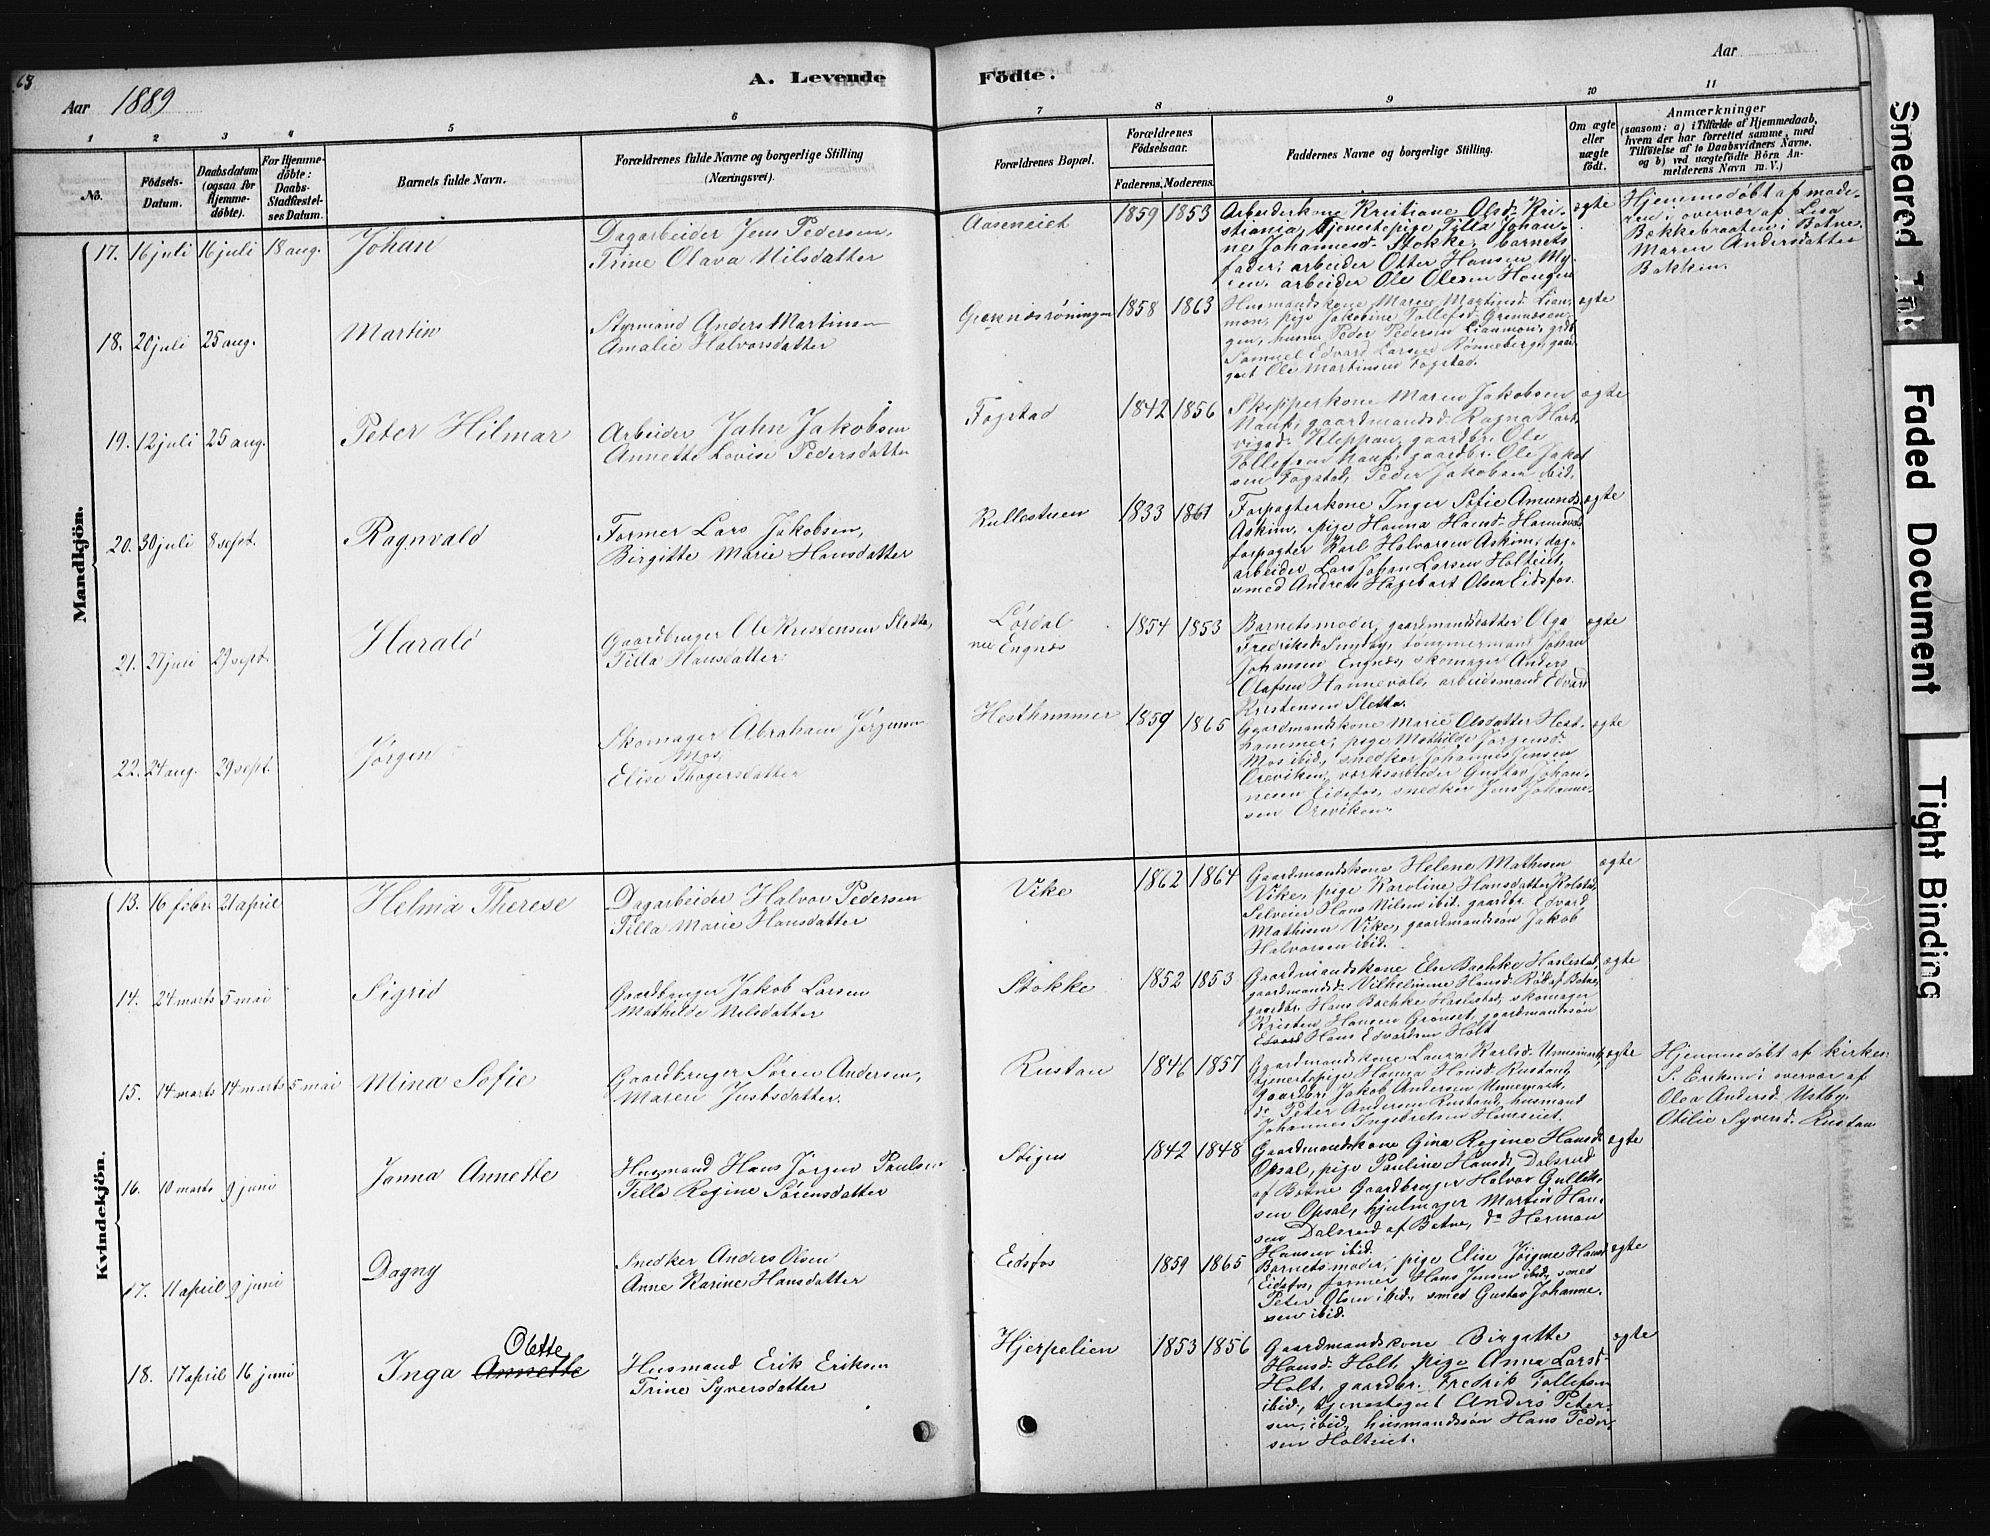 63
A. Levende Fødte.
Aar 1889
Aar
1 2 3 4 5 6 7 8 9 10 11
No.
Fødsels-Datum.
Daabsdatum (ogsaa for Hjemme-døbte).
For Hjemme-døbte: Daabs-Stadfæstel-ses Datum.
Barnets fulde Navn.
Forældrenes fulde Navne og borgerlige Stilling (Næringsvei).
Forældrenes Bopæl.
Forældrenes Fødselsaar.
Faderens. Moderens.
Faddernes Navne og borgerlige Stilling.
Om ægte eller uægte født.
Anmærkninger
(saasom: a) i Tilfælde af Hjemmedaab,
hvem der har forrettet samme, med
Tilføielse af to Daabsvidners Navne.
og b) ved uægtefødte Børn An-
melderens Navn m. V.)
Mandkjön.
17. 16 juli 16 juli 18 aug. Johan
Dagarbeider Jens Pedersen,
Trine Olava Nilsdatter
Aaseneiet 1859 1853
Arbeiderkone Kristiane Olsd. Kri-
stiania, tjenestepige Tilla Johan-
ne Johannesd. Stokke, barnets
fader, arbeider Otter Hansen My-
ren, arbeider Ole Olesen Haugen
ægte
Hjemmedøbt af mode-
ren i overvær af Lisa
Bakkebraaten i Botne
Maren Andersdatter
Bakken.
18. 20 juli 25 aug. Martin
Styrmand Anders Martinsen
Amalie Halvorsdatter
1858 1863
Husmandskone Maren Martinsd. Lian-
mon, pige Jakobine Tollefsd. Grennessen-
gen, husm. Peder Pedersen Lianmon, grdbr.
Samuel Edvard Larsen Rønneberg, gaar-
gut Ole Martinsen Fogstad.
ægte
19. 12 juli 25 aug. Peter Hilmar
Arbeider Jahn Jakobsen
Annette Lovise Pedersdatter
Fogstad 1842 1856
Skipperkone Maren Jakobsen
Nauf, gaardmandsd. Ragna Hart-
vigsd. Kleppan, gaardbr. Ole
Tollefsen Nauf, gaardbr. Ole Jakob
sen Fogstad, Peder Jakobsen ibid.
ægte
20. 30 juli 8 sept. Ragnvald
Former Lars Jakobsen,
Birgitte Marie Hansdatter
Rullestuen 1833 1861
Forpagterkone Inger Sofie Amunds.
Askim, pige Hanna Hansd. Hannevold
forpagter Karl Halvorsen Askim, dag-
arbeider Lars Johan Larsen Holteiet,
smed Andreas Hagebart Olsen Eidsfos.
ægte
21. 27 juni 29 sept. Harald
Gaardbruger Ole Kristensen Sletta,
Tilla Hansdatter
Lørdal
nu Engnæs 1854 1853
Barnets moder, gaardmandsdatter Olga
Fredriksd. Sundby, tømmermand Johan
Johansen Engnæs, skomager Anders
Olafsen Hannevold, arbeidsmand Edvard
Kristensen Sletta.
ægte
22. 24 aug. 29 sept. Jørgen
Skomager Abraham Jørgensen
Mos,
Elise Thogersdatter
Hesthammer 1859 1865
Gaardmandskone Marie Olsdatter Hest-
hammer, pige Mathilde Jørgensd.
Mos ibid, snedker Johannes Jensen
Oreviken, værksarbeider Gustav Johan-
nesen Eidsfos, snedker Jens Johanne-
sen Oreviken.
ægte
Kvindekjön.
13. 16 febr. 21 april Helma Therese
Dagarbeider Halvor Pedersen
Tilla Marie Hansdatter
Vike 1862 1864
Gaardmandskone Helene Mathisen
Vike, pige Karoline Hansdatter Rolstad,
Selveier Hans Nilsen ibid. gaardbr. Edvard
Mathisen Vike, gaardmandssøn Jakob
Halvorsen ibid.
ægte
14. 24 marts 5 mai Sigrid
Gaardbruger Jakob Larsen
Mathilde Nilsdatter
Stokke 1852 1853
Gaardmandskone Else Backke Haslestad,
gaardmandsd. Vilhelmine Hansd. Røl af Botne,
gaardbr. Hans Backke Haslestad, skomager
Kristen Hansen Grønset, gaardmandssøn
Edvard Hans Edvardsen Holt
ægte
15. 14 marts 14 marts 5 mai Mina Sofie
Gaardbruger Søren Andersen,
Maren Justsdatter.
Rustan 1846 1857
Gaardmandskone Laura Karlsd. Unnemark,
tjenestepige Hanna Hansd. Rustand,
gaardbr. Jakob Andersen Unnemark,
do Peter Andersen Rustand, husmand
Johannes Ingebretsen Hanseiet.
ægte
Hjemmedøbt af kirkes.
S. Eriksen i overvær af
Olea Andersd. Ustby.
Otilie Syversd. Rustan
16. 10 marts 9 juni Janna Annette
Husmand Hans Jørgen Paulsen
Tilla Regine Sørensdatter
Stigen 1842 1848
Gaardmandskone Gina Regine Hansd.
Opsal, pige Pauline Hansd. Dalsrud
af Botne Gaardbruger Halvor Gullik-
sen Opsal, hjulmager Martin Han-
sen Dalsrud af Botne, do Herman
Hansen ibid.
ægte
17. 11 april 9 juni Dagny
Snedker Anders Olsen
Anne Karine Hansdatter
Eidsfos 1859 1865
Barnets moder, pige Elise Jørgine Hansd.
Eidsfos, former Hans Jensen ibid, smed
Peter Olsen ibid, smed Gustav Johanne-
sen ibid.
ægte
18. 17 april 16 juni Inga Annette Olette
Husmand Erik Eriksen
Trine Syversdatter
Hjerpelien 1853 1856
Gaardmandskone Birgatte
Hansd. Holt, pige Anna Larsd.
Holt, gaardbr. Fredrik Tollefsen
ibid, tjenestegut Anders Peter-
sen, ibid, husmandssøn Hans Peder-
sen Holteiet.
ægte
Smeared Ink
Faded Document
Tight Binding